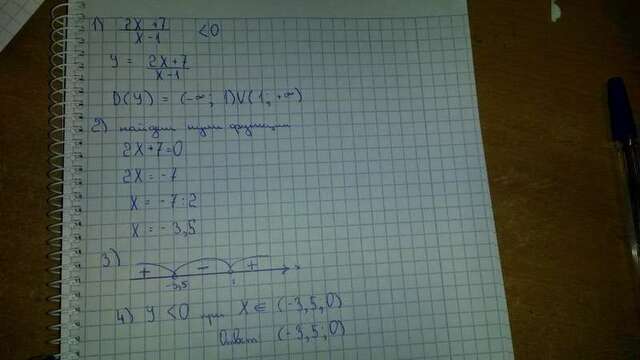 1) (2x+7)/(x-1) <0
y = (2x+7)/(x-1)
D(y) = (-∞; 1)V(1; +∞)
2) найдем нули функции
2x+7=0
2x = -7
x = -7:2
x = -3,5
3) + - + x
-3,5 1
4) y <0 при x ∈ (-3,5,0)
Ответ (-3,5,0)